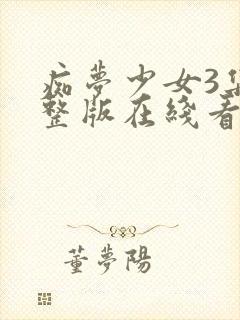 痴夢少女3集
整版在綫看
董夢陽